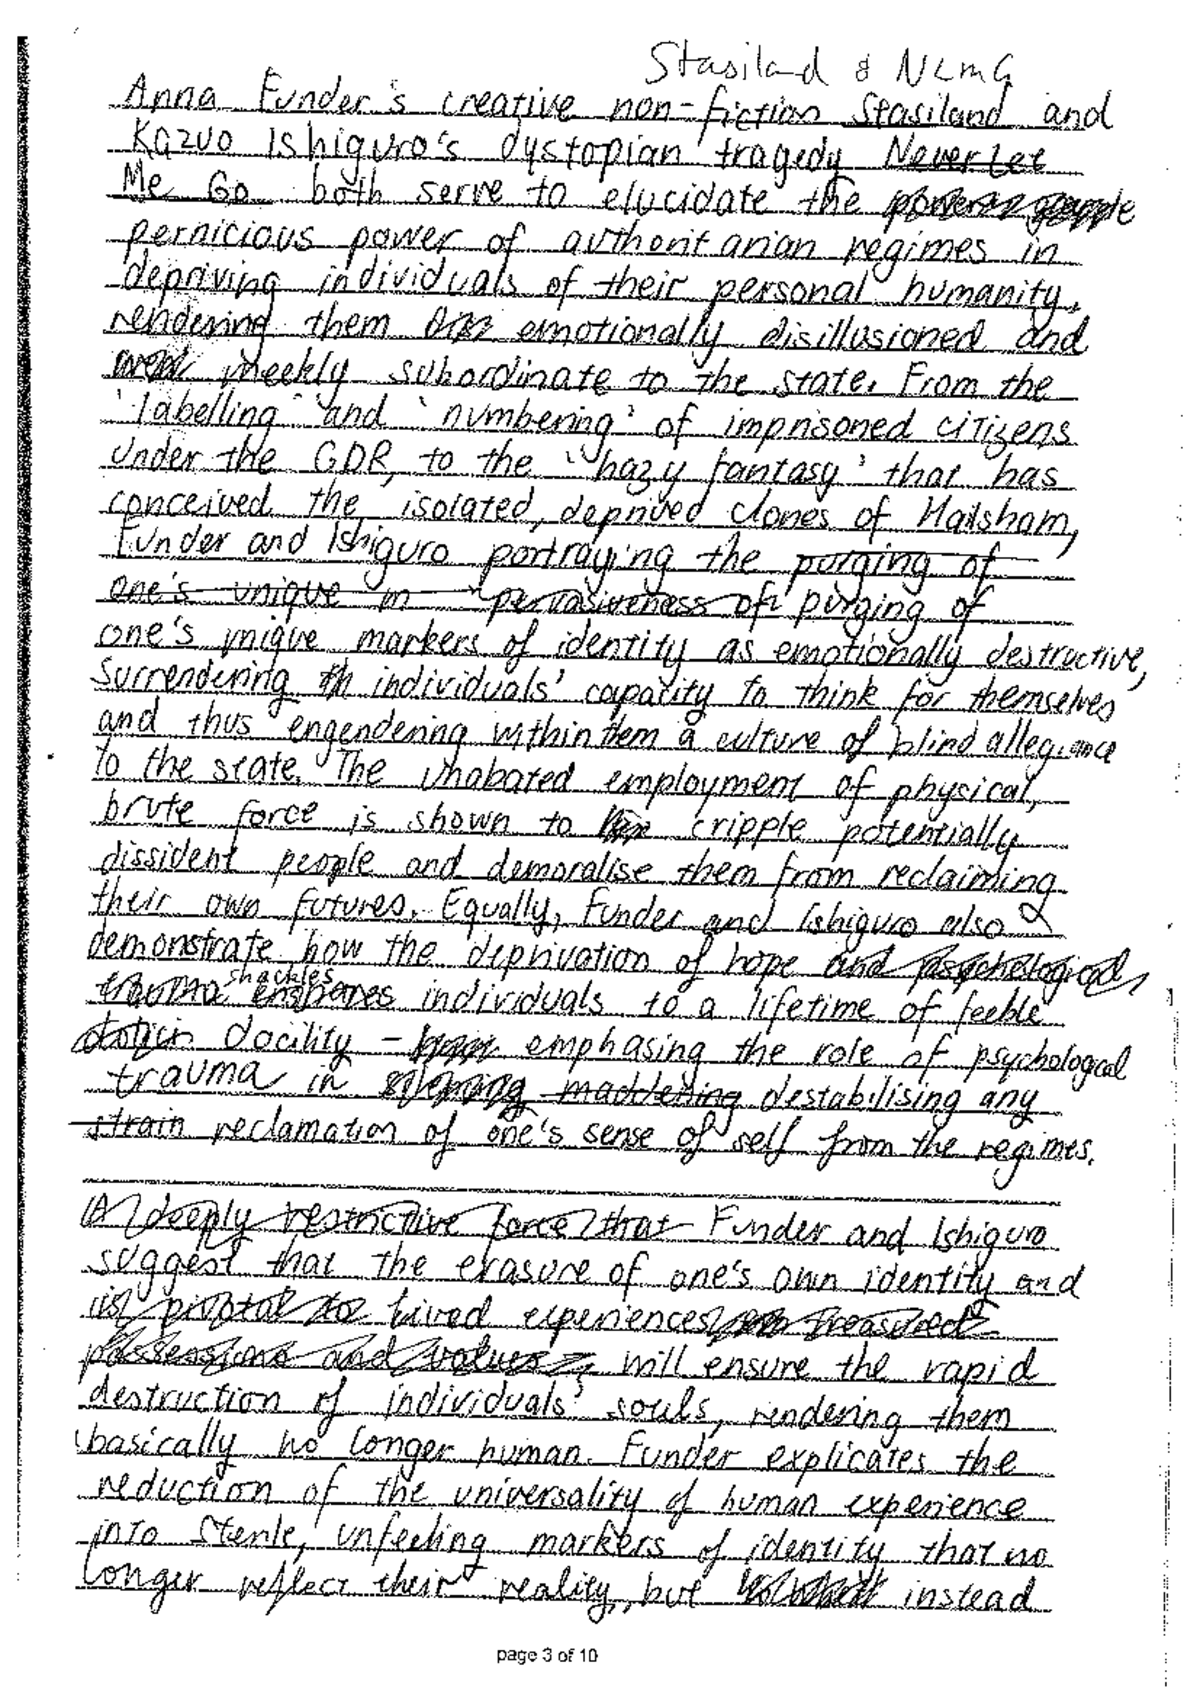 Stasiland & NLMG
Anna Funder's creative non-fiction Stasiland and
Kazuo Ishiguro's dystopian tragedy Never Let
Me Go both serve to elucidate the
pernicious power of authoritarian regimes in
depriving individuals of their personal humanity,
rendering them emotionally disillusioned and
meekly subordinate to the state. From the
'labelling' and 'numbering' of imprisoned citizens
under the GDR, to the 'hazy fantasy' that has
conceived the isolated, deprived clones of Hailsham,
Funder and Ishiguro portraying the purging of
one's unique in pervasiveness of purging of
one's unique markers of identity as emotionally destructive,
surrendering individuals' capacity to think for themselves
and thus engendering within them a culture of blind allegiance
to the state. The unabated employment of physical,
brute force is shown to cripple potentially
dissident people and demoralise them from reclaiming
their own futures. Equally, Funder and Ishiguro also
demonstrate how the deprivation of hope and psychological
trauma shackles individuals to a lifetime of feeble
docility - emphasing the role of psychological
trauma in maddening destabilising any
strain reclamation of one's sense of self from the regimes.
A deeply restrictive force that Funder and Ishiguro
suggest that the erasure of one's own identity and
is pivotal to lived experiences treasured
possessions and values will ensure the rapid
destruction of individuals' souls, rendering them
basically no longer human. Funder explicates the
reduction of the universality of human experience
into sterile, unfeeling markers of identity that no
longer reflect their reality, but instead
page 3 of 10